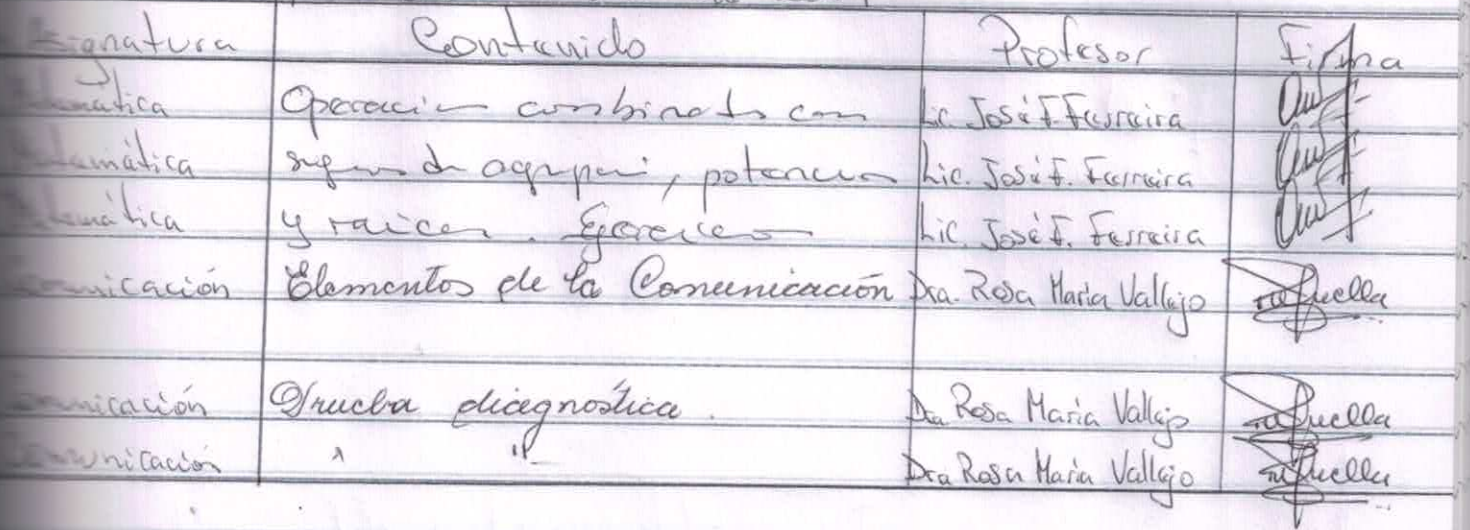 Asignatura Contenido Profesor Firma
Matemática Operacion combinada con Lic. José F. Ferreira
Matemática signos de agrupación, potencias Lic. José F. Ferreira
Matemática y raices. Ejercicios Lic. José F. Ferreira
Comunicación Elementos de la Comunicación Dra. Rosa María Vallejo
Comunicación Prueba diagnóstica. Dra Rosa María Vallejo
Comunicación " " Dra Rosa María Vallejo